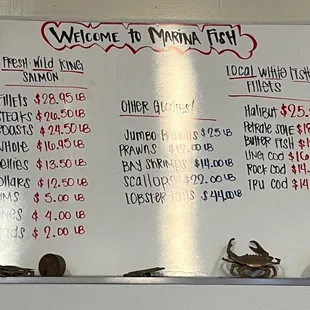 Welcome to Marina Fish
Fresh-Wild King
Salmon
Fillets $28.95 LB
Steaks $26.50 LB
Roasts $24.50 LB
Whole $16.95
Bellies $13.50
Collars $12.50 LB
$5.00 LB
$4.00 LB
$2.00 LB
Other Goodies!
Jumbo Prawns $25 LB
Prawns $12.00 LB
Bay Shrimp $14.00 LB
Scallops $22.00 LB
Lobster Tails $44.00 LB
Local White Fish
Fillets
Halibut $25.
Petrale Sole $18
Butter Fish $1
Ling Cod $16
Rock Cod $14.
Tru Cod $14